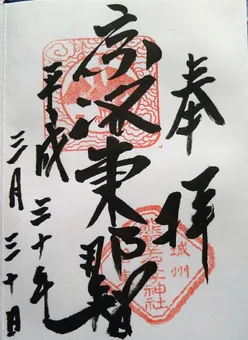 奉拝
京洛東那智
平成三十年
三月三十日
城州
熊野若王子神社